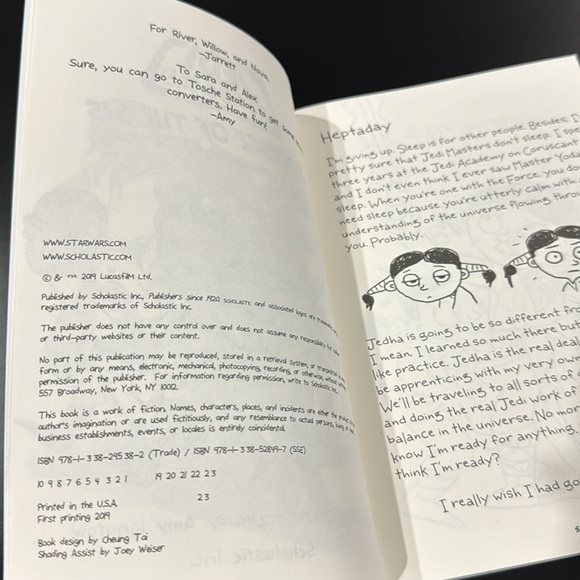 For River, Willow, and Nova,
—Jarrett
To Sara and Alex
Sure, you can go to Tosche Station to get some
converters. Have fun!
—Amy
WWW.STARWARS.COM
WWW.SCHOLASTIC.COM
© & ™ 2019 Lucasfilm Ltd.
Published by Scholastic Inc., Publishers since 1920. SCHOLASTIC and associated logos are trademarks
registered trademarks of Scholastic Inc.
The publisher does not have any control over and does not assume any responsibility for
or third-party websites or their content.
No part of this publication may be reproduced, stored in a retrieval system, or transmitted
form or by any means, electronic, mechanical, photocopying, recording, or otherwise, without
permission of the publisher. For information regarding permission, write to Scholastic Inc.,
557 Broadway, New York, NY 10012.
This book is a work of fiction. Names, characters, places, and incidents are either the product
author's imagination or are used fictitiously, and any resemblance to actual persons, living or
business establishments, events, or locales is entirely coincidental.
ISBN 978-1-338-29538-2 (Trade) / ISBN 978-1-338-52849-7 (SSE)
10 9 8 7 6 5 4 3 2 1 19 20 21 22 23
Printed in the U.S.A. 23
First printing 2019
Book design by Cheung Tai
Shading Assist by Joey Weiser
Heptaday
I'm giving up. Sleep is for other people. Besides, I
pretty sure that Jedi Masters don't sleep. I spe
three years at the Jedi Academy on Coruscant
and I don't even think I ever saw Master Yoda
sleep. When you're one with the Force, you do
need sleep because you're utterly calm with
understanding of the universe flowing throu
you. Probably.
Jedha is going to be so different fro
I mean. I learned so much there but
like practice. Jedha is the real deal
be apprenticing with my very own
We'll be traveling to all sorts of
and doing the real Jedi work of
balance in the universe. No mor
know I'm ready for anything.
think I'm ready?
I really wish I had go